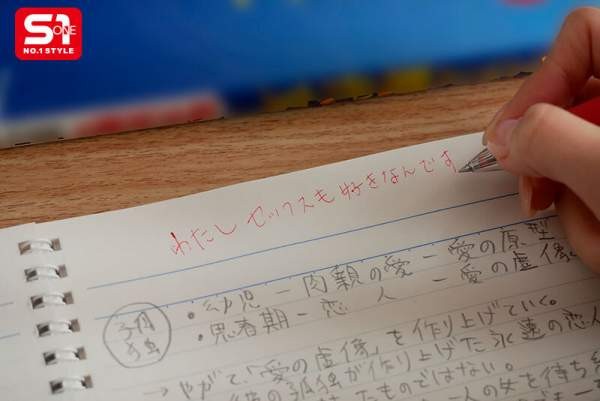 S1
ONE
NO.1 STYLE
わたし セックスも 好きなんです
・幼児 ー 肉親の愛 ー 愛の原型
・思春期 ー 恋 人 ー 愛の虚像
孤独
→ やがて「愛の虚像」を作り上げていく。
の孤独が作り上げた永遠の恋人
たものではない。
一人の女を待ち